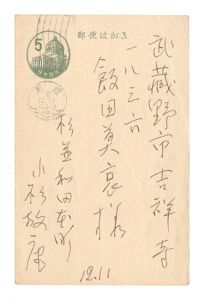 郵便はがき
5
武蔵野市吉祥寺
一八三六
飯田莫哀様
杉並和田本町
小杉放庵
12.11